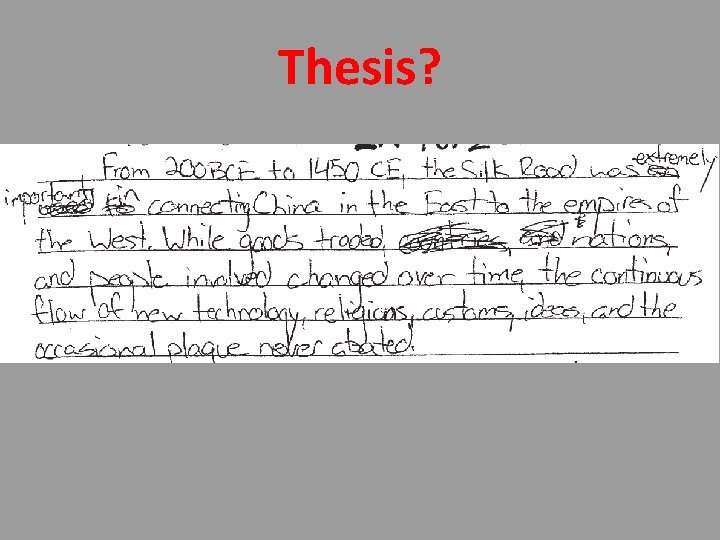 Thesis?
From 200 BCE to 1450 CE, the Silk Road was extremely
important in connecting China in the East to the empires of
the West. While goods traded, nations,
and people involved changed over time, the continuous
flow of new technology, religions, customs, ideas, and the
occasional plague never abated.